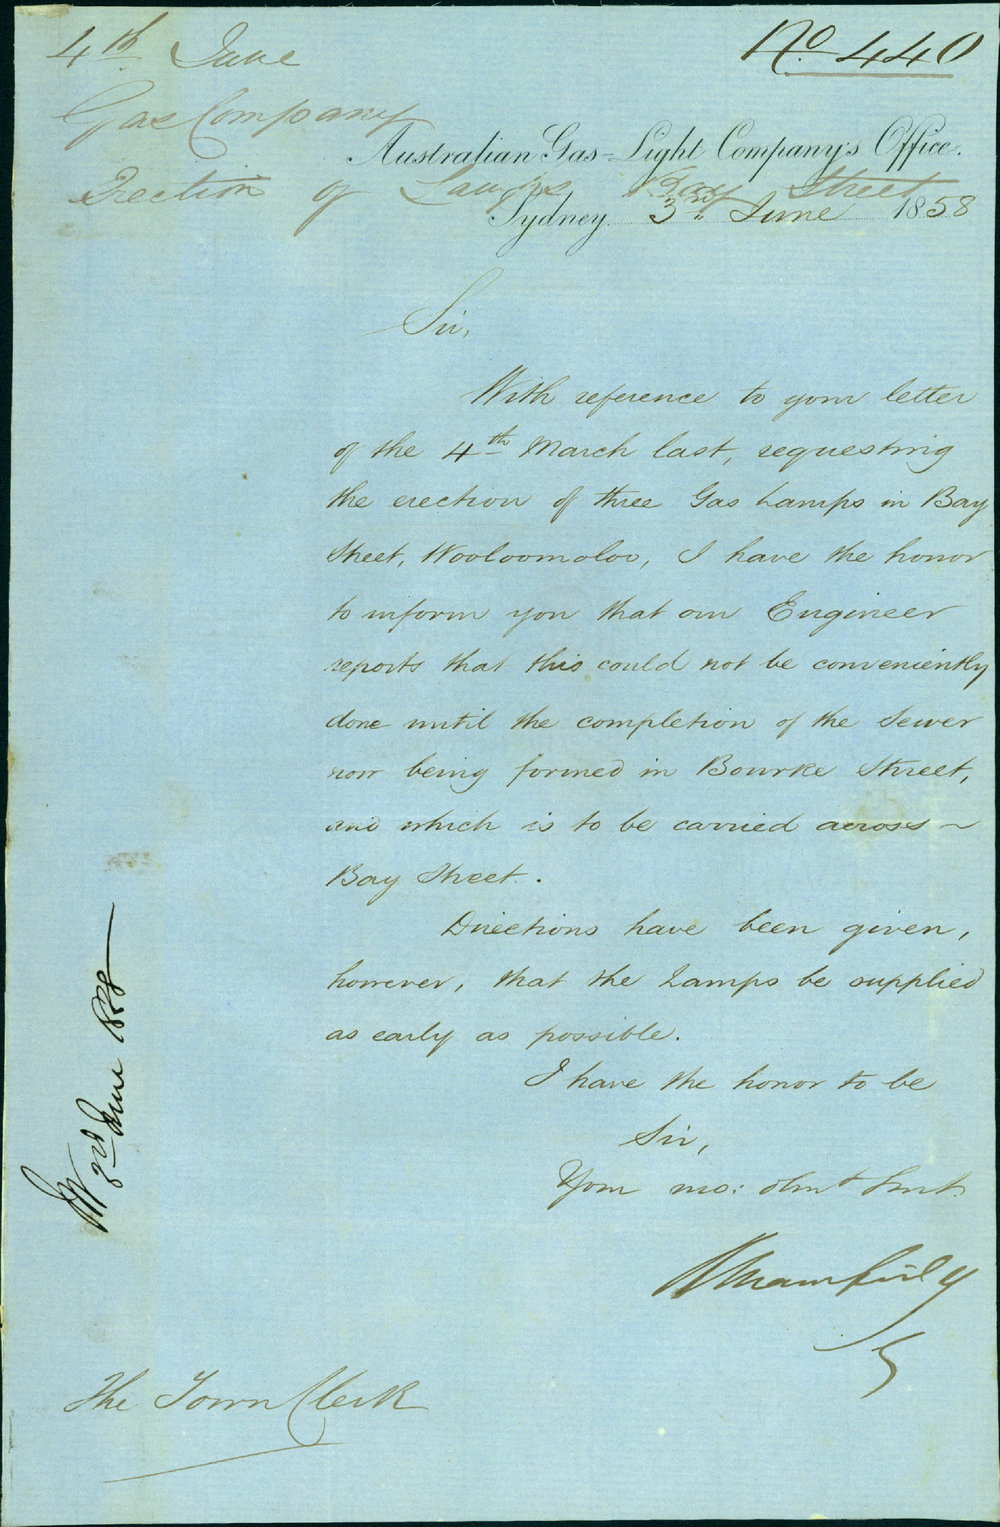 4th June
No. 440
Gas Company
Australian Gas-Light Company's Office.
Erection of Lamps Bay Street
Sydney. 3rd June 1858
Sir,
With reference to your letter
of the 4th March last, requesting
the erection of three Gas Lamps in Bay
Street, Wooloomoloo, I have the honor
to inform you that our Engineer
reports that this could not be conveniently
done until the completion of the Sewer
now being formed in Bourke Street,
and which is to be carried across
Bay Street.
Directions have been given,
however, that the Lamps be supplied
as early as possible.
I have the honor to be
Sir,
Your mo: obnt Servt.
The Town Clerk
3rd June 1858